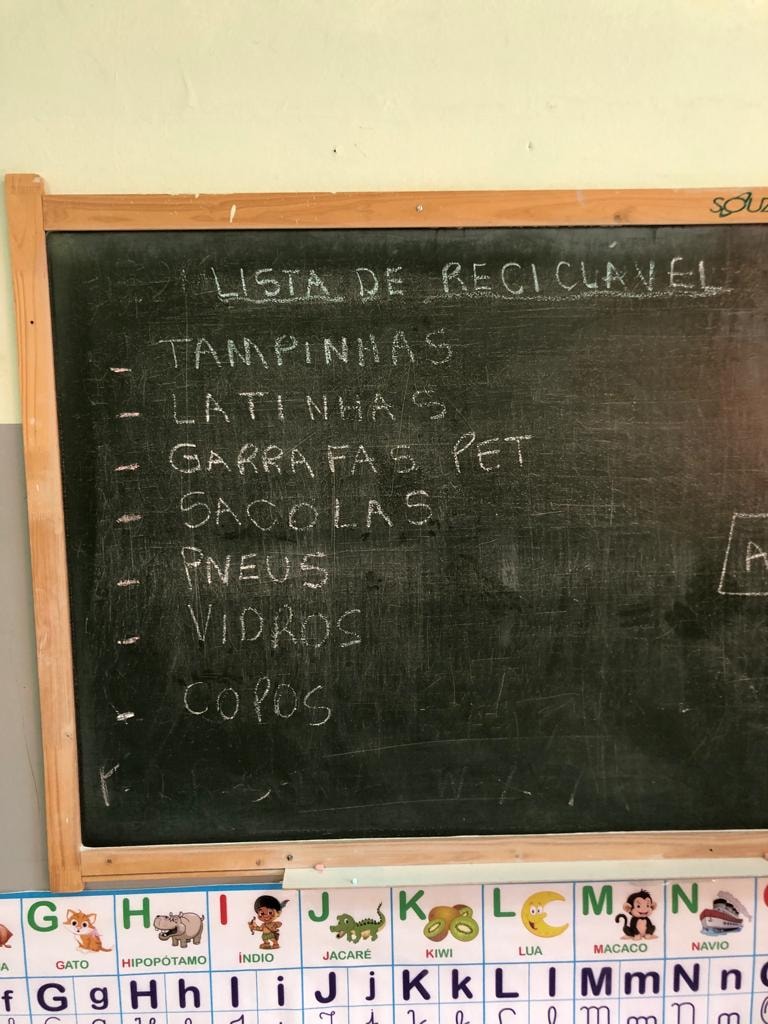 LISTA DE RECICLÁVEL
- TAMPINHAS
- LATINHAS
- GARRAFAS PET
- SACOLAS
- PNEUS
- VIDROS
- COPOS
G H I J K L M N
GATO HIPOPÓTAMO ÍNDIO JACARÉ KIWI LUA MACACO NAVIO
f G g H h I i J j K k L l M m N n